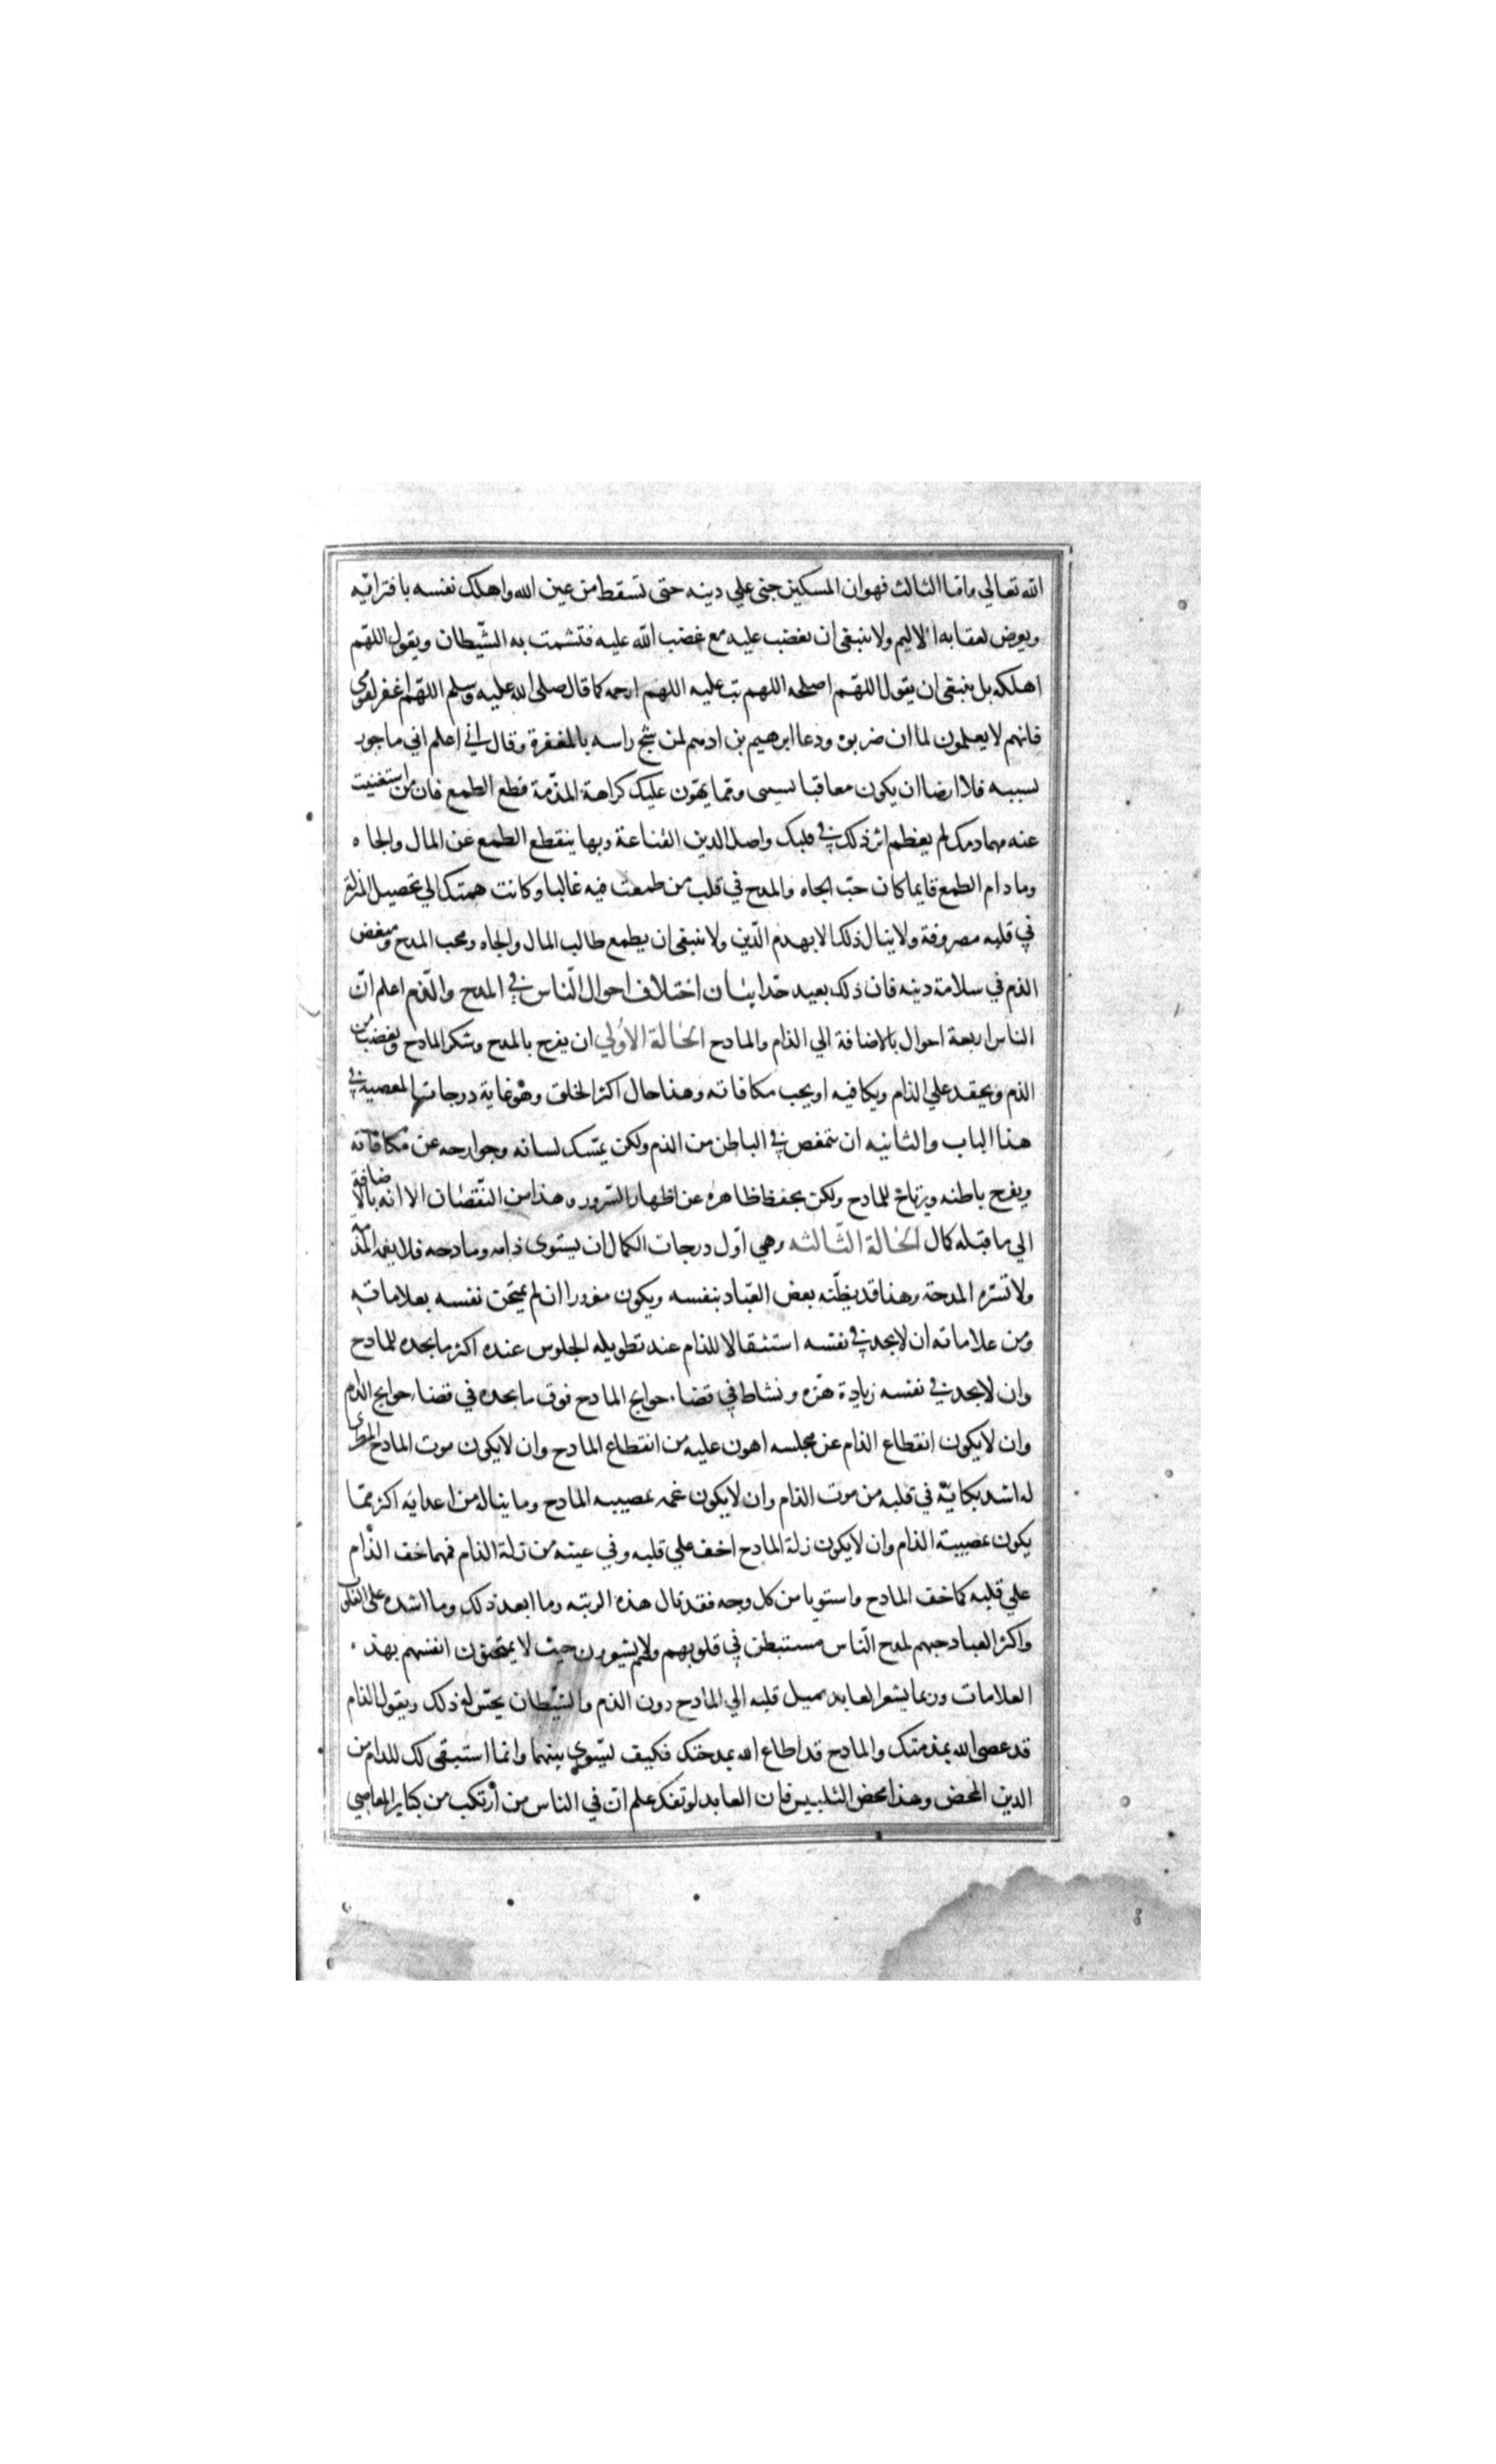 الله تعالي واما الثالث فهو ان المسكين جنى علي دينه حتى تسقط من عين الله واهلك نفسه بافترائه
ويعرض لعقابه الاليم ولا ينبغى ان تغضب عليه مع غضب الله عليه فتشمت به الشيطان ويقول اللهم
اهلكه بل ينبغى ان يقول اللهم اصلحه اللهم تب عليه اللهم ارحمه كما قال صلى الله عليه وسلم اللهم اغفر لقومى
فانهم لا يعلمون لما ان ضربوه ودعا ابرهيم بن ادهم لمن شج راسه بالمغفرة وقال اني اعلم اني ماجور
بسببه فلا ارضا ان يكون معاقبا بسببى ومما يهون عليك كراهة المذمة قطع الطمع فان من استغنيت
عنه مهما ذمك لم يعظم اثر ذلك في قلبك واصل الدين القناعة وبها ينقطع الطمع عن المال والجاه
وما دام الطمع قايما كان حب الجاه والمدح في قلب من طمعت فيه غالبا وكانت همتك الي تحصيل المنزلة
في قلبه مصروفة ولا ينال ذلك الا بهدم الدين ولا ينبغى ان يطمع طالب المال والجاه ومحب المدح ومبغض
الذم في سلامة دينه فان ذلك بعيد جدا بيان اختلاف احوال الناس في المدح والذم اعلم ان
الناس اربعة احوال بالاضافة الي الذام والمادح الحالة الاولي ان يفرح بالمدح وشكر المادح ويغضب من
الذم ويحقد علي الذام ويكافيه او يحب مكافاته وهذا حال اكثر الخلق وهو غاية درجات المعصية في
هذا الباب والثانيه ان يتمعض في الباطن من الذم ولكن يمسك لسانه وجوارحه عن مكافاته
ويفرح باطنه ويرتاح للمادح ولكن يحفظ ظاهره عن اظهار السرور وهذا من النقصان الا انه بالاضافة
الي ما قبله كمال الحالة الثالثه وهي اول درجات الكمال ان يستوى ذامه ومادحه فلا يغمه المذمة
ولا تسره المدحة وهذا قد يظنه بعض العباد بنفسه ويكون مغرورا ان لم يمتحن نفسه بعلاماته
ومن علاماته ان لا يجد في نفسه استثقالا للذام عند تطويله الجلوس عنده اكثر ما يجده للمادح
وان لا يجد في نفسه زيادة هزة ونشاط في قضاء حوايج المادح فوق ما يجده في قضاء حوايج الذام
وان لا يكون انقطاع الذام عن مجلسه اهون عليه من انقطاع المادح وان لا يكون موت المادح المطرى
له اشد نكاية في قلبه من موت الذام وان لا يكون غمه بمصيبه المادح وما يناله من اعدايه اكثر مما
يكون بمصيبة الذام وان لا يكون زلة المادح اخف علي قلبه وفي عينه من زلة الذام فمهما خف الذام
علي قلبه كما خف المادح واستويا من كل وجه فقد نال هذه الرتبه وما ابعد ذلك وما اشده على القلوب
واكثر العباد حبهم لمدح الناس مستبطن في قلوبهم ولا يشعرون حيث لا يمتحنون انفسهم بهذه
العلامات وربما يشعر العابد بميل قلبه الي المادح دون الذم والشيطان يحسن له ذلك ويقول الذام
قد عصى الله بمذمتك والمادح قد اطاع الله بمدحتك فكيف تسوى بينهما وانما استبقى لك للذام من
الدين المحض وهذا محض التلبيس فان العابد لو تفكر علم ان في الناس من ارتكب من كباير المعاصي